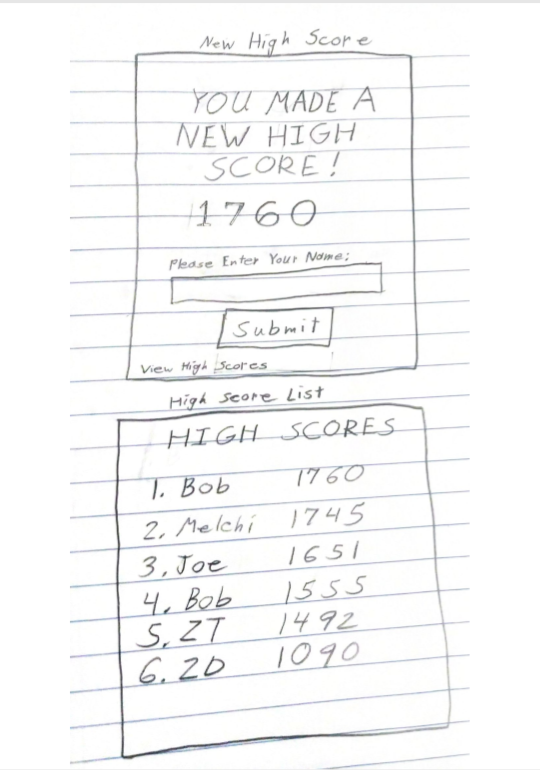 New High Score
YOU MADE A
NEW HIGH
SCORE!
1760
Please Enter Your Name:
Submit
View High Scores
High Score List
HIGH SCORES
1. Bob 1760
2. Melchi 1745
3. Joe 1651
4. Bob 1555
5. ZT 1492
6. ZD 1090